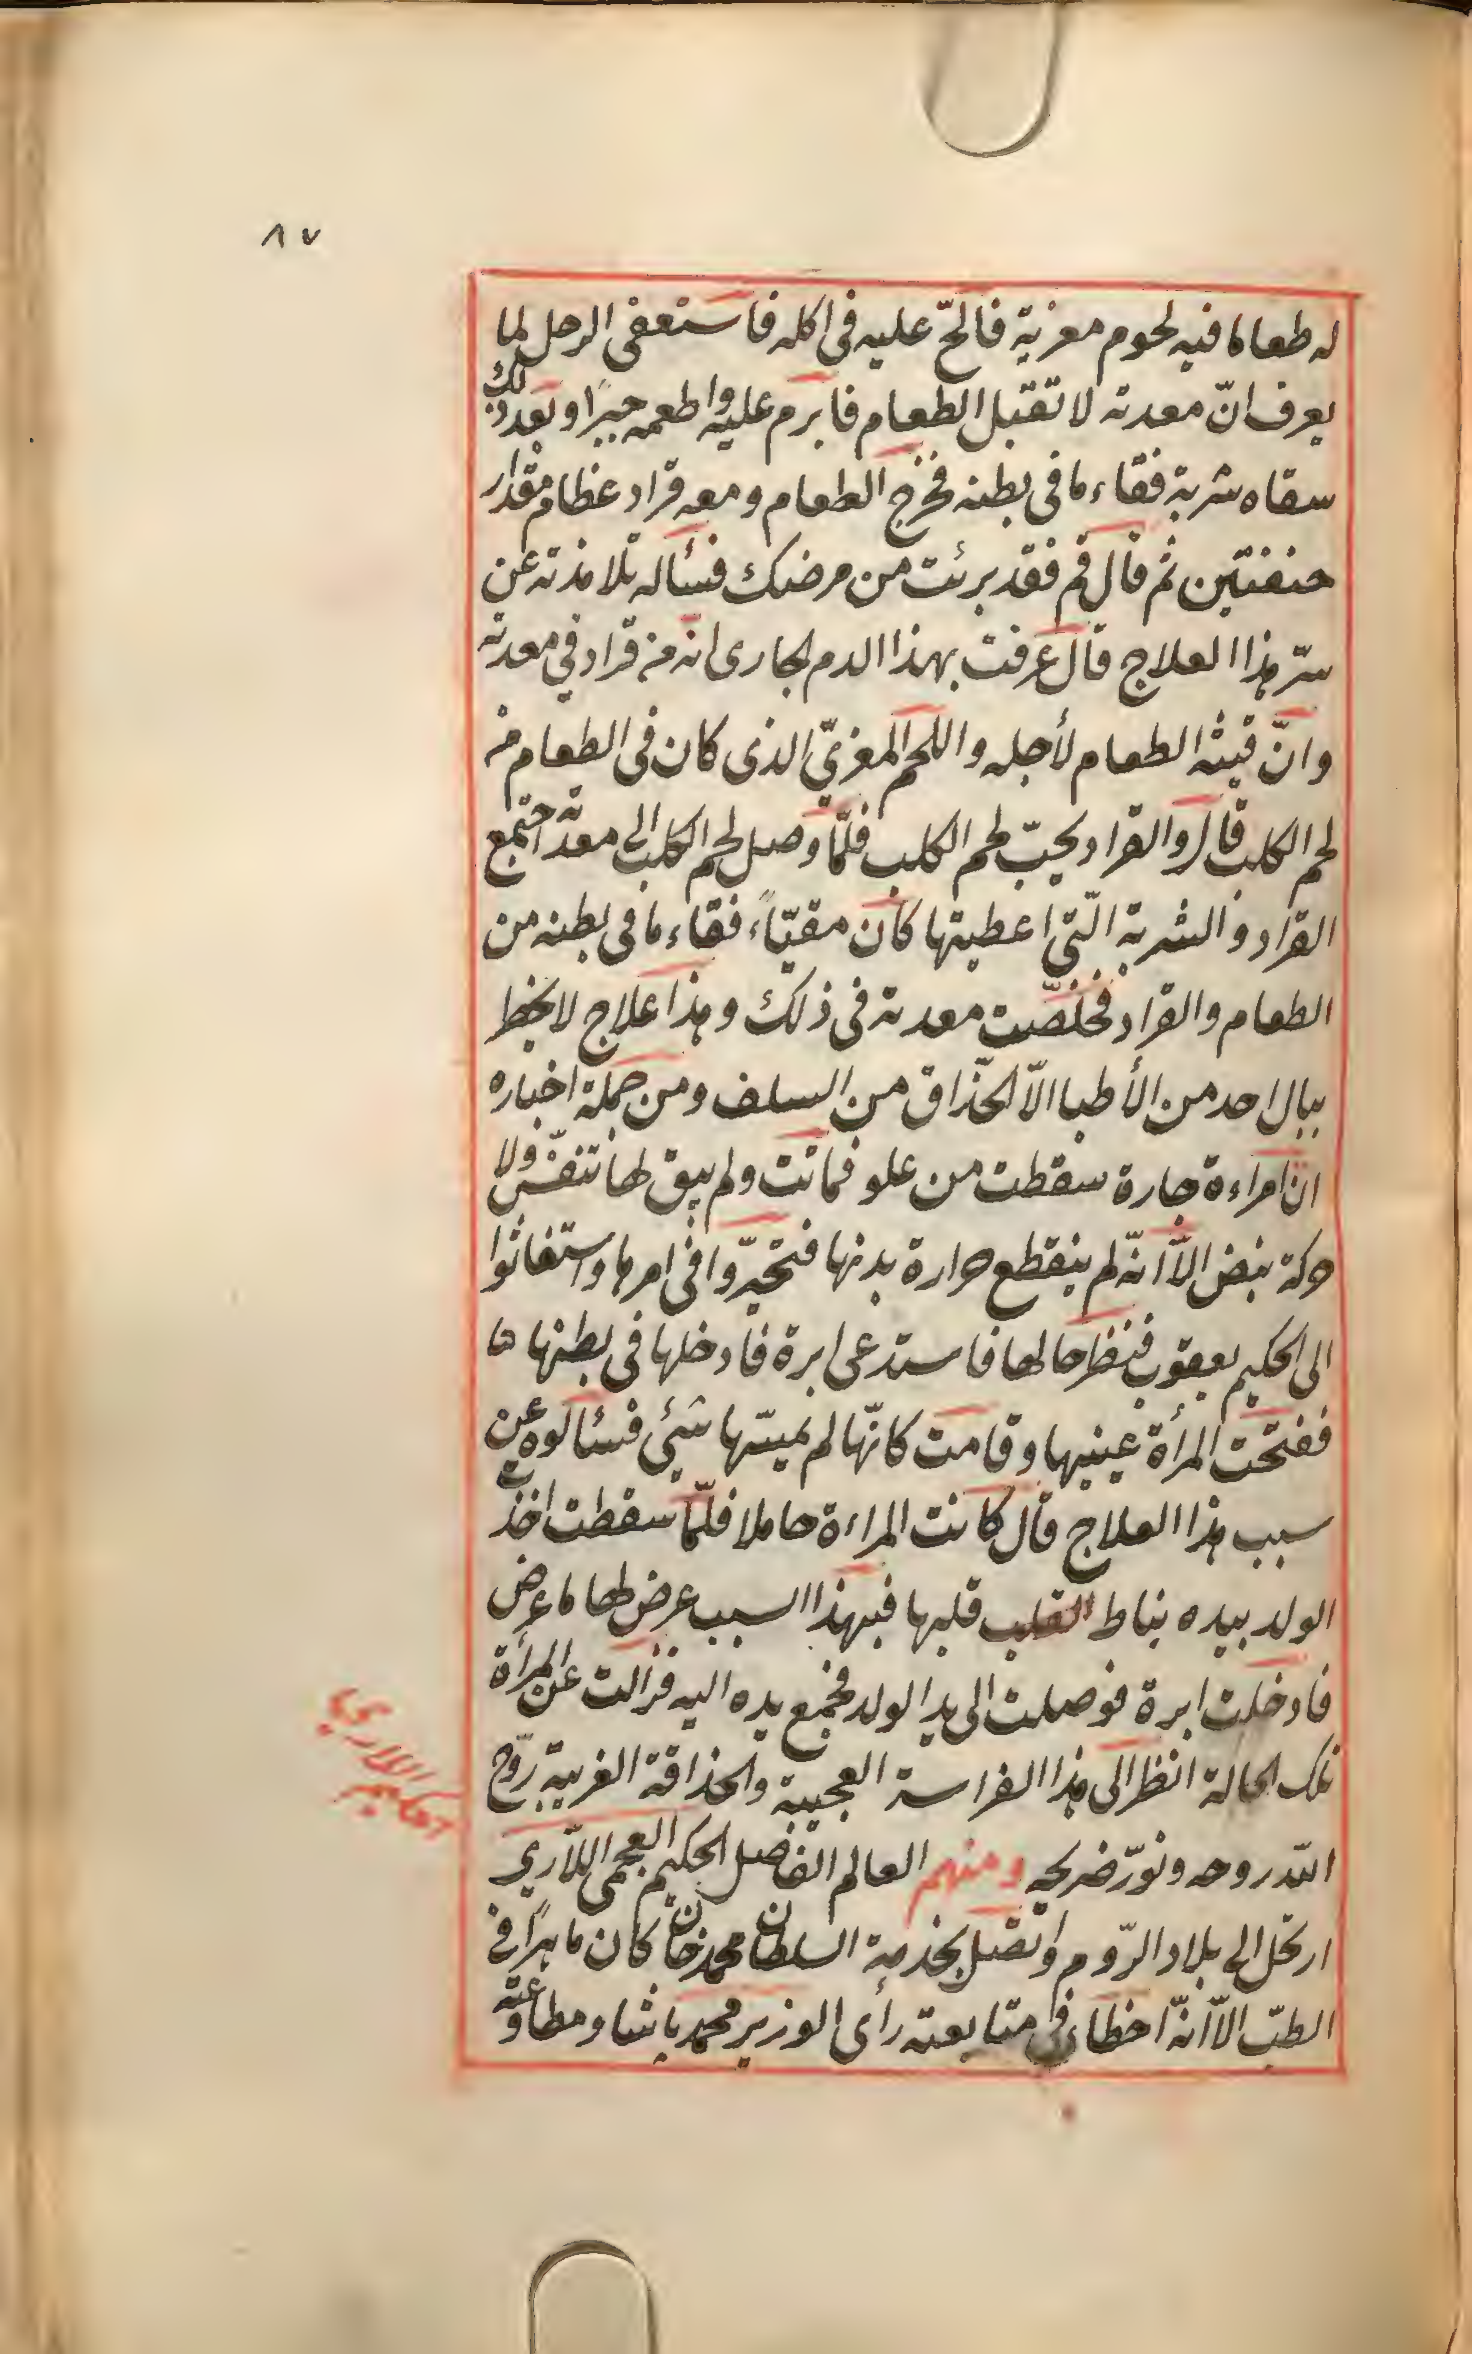 ٨٧
له طعاما فيه لحوم مغرية فالحّ عليه فى اكله فاستعفى الرجل لما
يعرف انّ معدته لا تقبل الطعام فابرم عليه واطعمه جبرًا وبعد ذلك
سقاه شربة فقاء ما فى بطنه فخرج الطعام ومعه قراد عظام مقدار
حفنتين ثم قال قم فقد برئت من مرضك فسأله تلامذته عن
سرّ هذا العلاج قال عرفت بهذا الدم الجارى انه من قراد في معدته
وانّ قيئه الطعام لأجله واللحم المغريّ الذى كان فى الطعام من
لحم الكلب قال والقراد يحبّ لحم الكلب فلمّا وصل لحم الكلب الى معدته اجتمع
القراد والشربة الّتي اعطيتها كان مقيّاً، فقاء ما فى بطنه من
الطعام والقراد فخلصّت معدته فى ذلك وهذا علاج لا يخطر
ببال احد من الأطبا الاّ الحذّاق من السلف ومن جملة اخباره
ان امراءة جارة سقطت من علو فماتت ولم يبق لها تنفّس ولا
حركة نبض الاّ انّه لم ينقطع حرارة بدنها فتحيّروا فى امرها واستغاثوا
الى الحكيم يعقوب فنظر حالها فاستدعى ابرة فادخلها فى بطنها
ففتحت المرأة عينيها وقامت كانّها لم يمسّها شيئ فسئالوه عن
سبب هذا العلاج قال كانت المراءة حاملا فلمّا سقطت اخذ
الولد بيده نياط القلب قلبها فبهذا السبب عرض لها ما عرض
فادخلت ابرة فوصلت الى يد الولد فجمع يده اليه فزالت عن المرأة
تلك الحالة انظر الى هذا الفراسة العجيبة والحذاقة الغريبة روّح
اللّه روحه ونوّر ضريحه ومنهم العالم الفاضل الحكيم العجمى اللاّري
ارتحل الى بلاد الرّوم واتّصل بخدمة السلطان محمد خان كان ماهرًا فى
الطبّ الاّ انّه اخطاء فى متابعته رأى الوزير محمد پاشا ومطاوعته
الحكيم اللاري